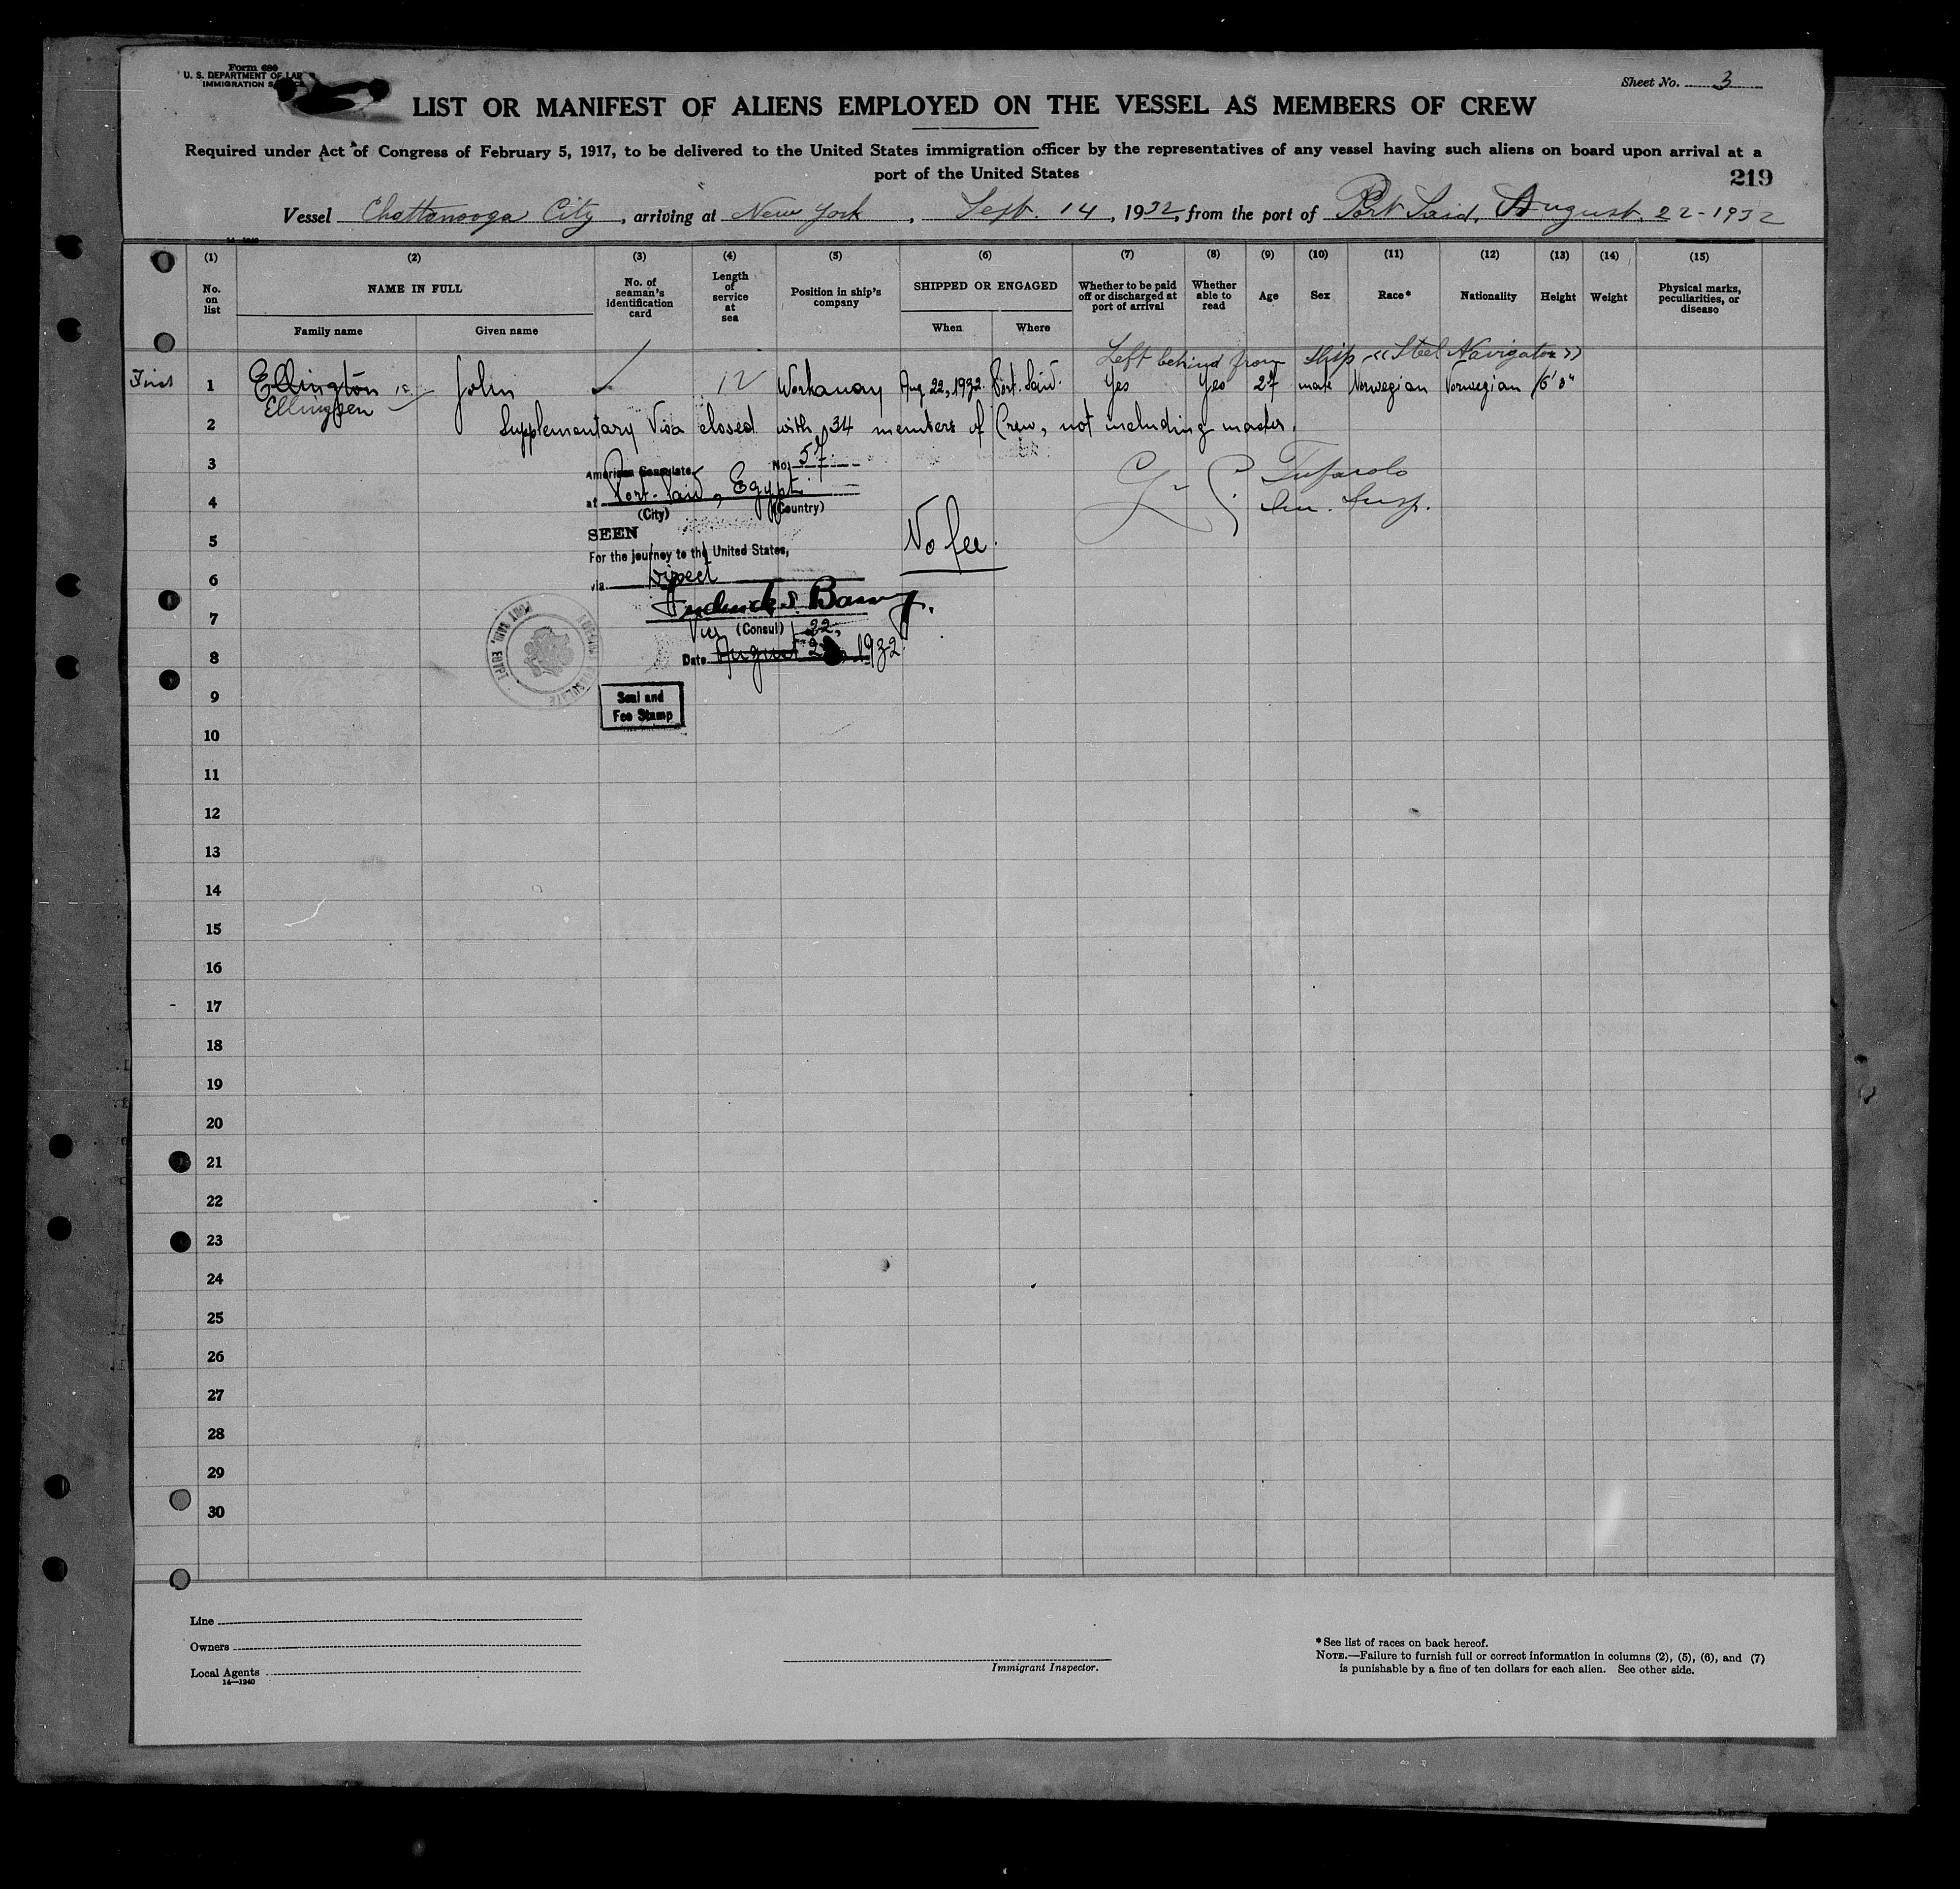 Form 680
U. S. DEPARTMENT OF LABOR
IMMIGRATION SERVICE
Sheet No. 3
LIST OR MANIFEST OF ALIENS EMPLOYED ON THE VESSEL AS MEMBERS OF CREW
Required under Act of Congress of February 5, 1917, to be delivered to the United States immigration officer by the representatives of any vessel having such aliens on board upon arrival at a
port of the United States
219
Vessel Chattanooga City, arriving at New York, Sept. 14, 1932, from the port of Port Said, August 22-1932
14-1240
(1) (2) (3) (4) (5) (6) (7) (8) (9) (10) (11) (12) (13) (14) (15)
No. on list
NAME IN FULL
Family name
Given name
No. of seaman's identification card
Length of service at sea
Position in ship's company
SHIPPED OR ENGAGED
When
Where
Whether to be paid off or discharged at port of arrival
Whether able to read
Age
Sex
Race*
Nationality
Height
Weight
Physical marks, peculiarities, or disease
Left behind from ship «Steel Navigator»
First 1 Ellington John 12 Workaway Aug 22, 1932. Port. Said. Yes Yes 27 male Norwegian Norwegian 6'0"
Ellingsen
2 Supplementary Visa closed with 34 members of Crew, not including master.
3
American Consulate No. 57
4
at Port-Said, Egypt
(City) (Country)
Tufarolo
Im. Insp.
SEEN
5
No fee.
For the journey to the United States,
6
via Direct
Frederick S. Barny
7
Vice (Consul) 22,
8
Date August 22, 1932.
PORT SAID, EGYPT
AMERICAN CONSULATE
9
Seal and
Fee Stamp
10
11
12
13
14
15
16
17
18
19
20
21
22
23
24
25
26
27
28
29
30
Line
Owners
Local Agents
14-1240
Immigrant Inspector.
*See list of races on back hereof.
NOTE.—Failure to furnish full or correct information in columns (2), (5), (6), and (7)
is punishable by a fine of ten dollars for each alien. See other side.